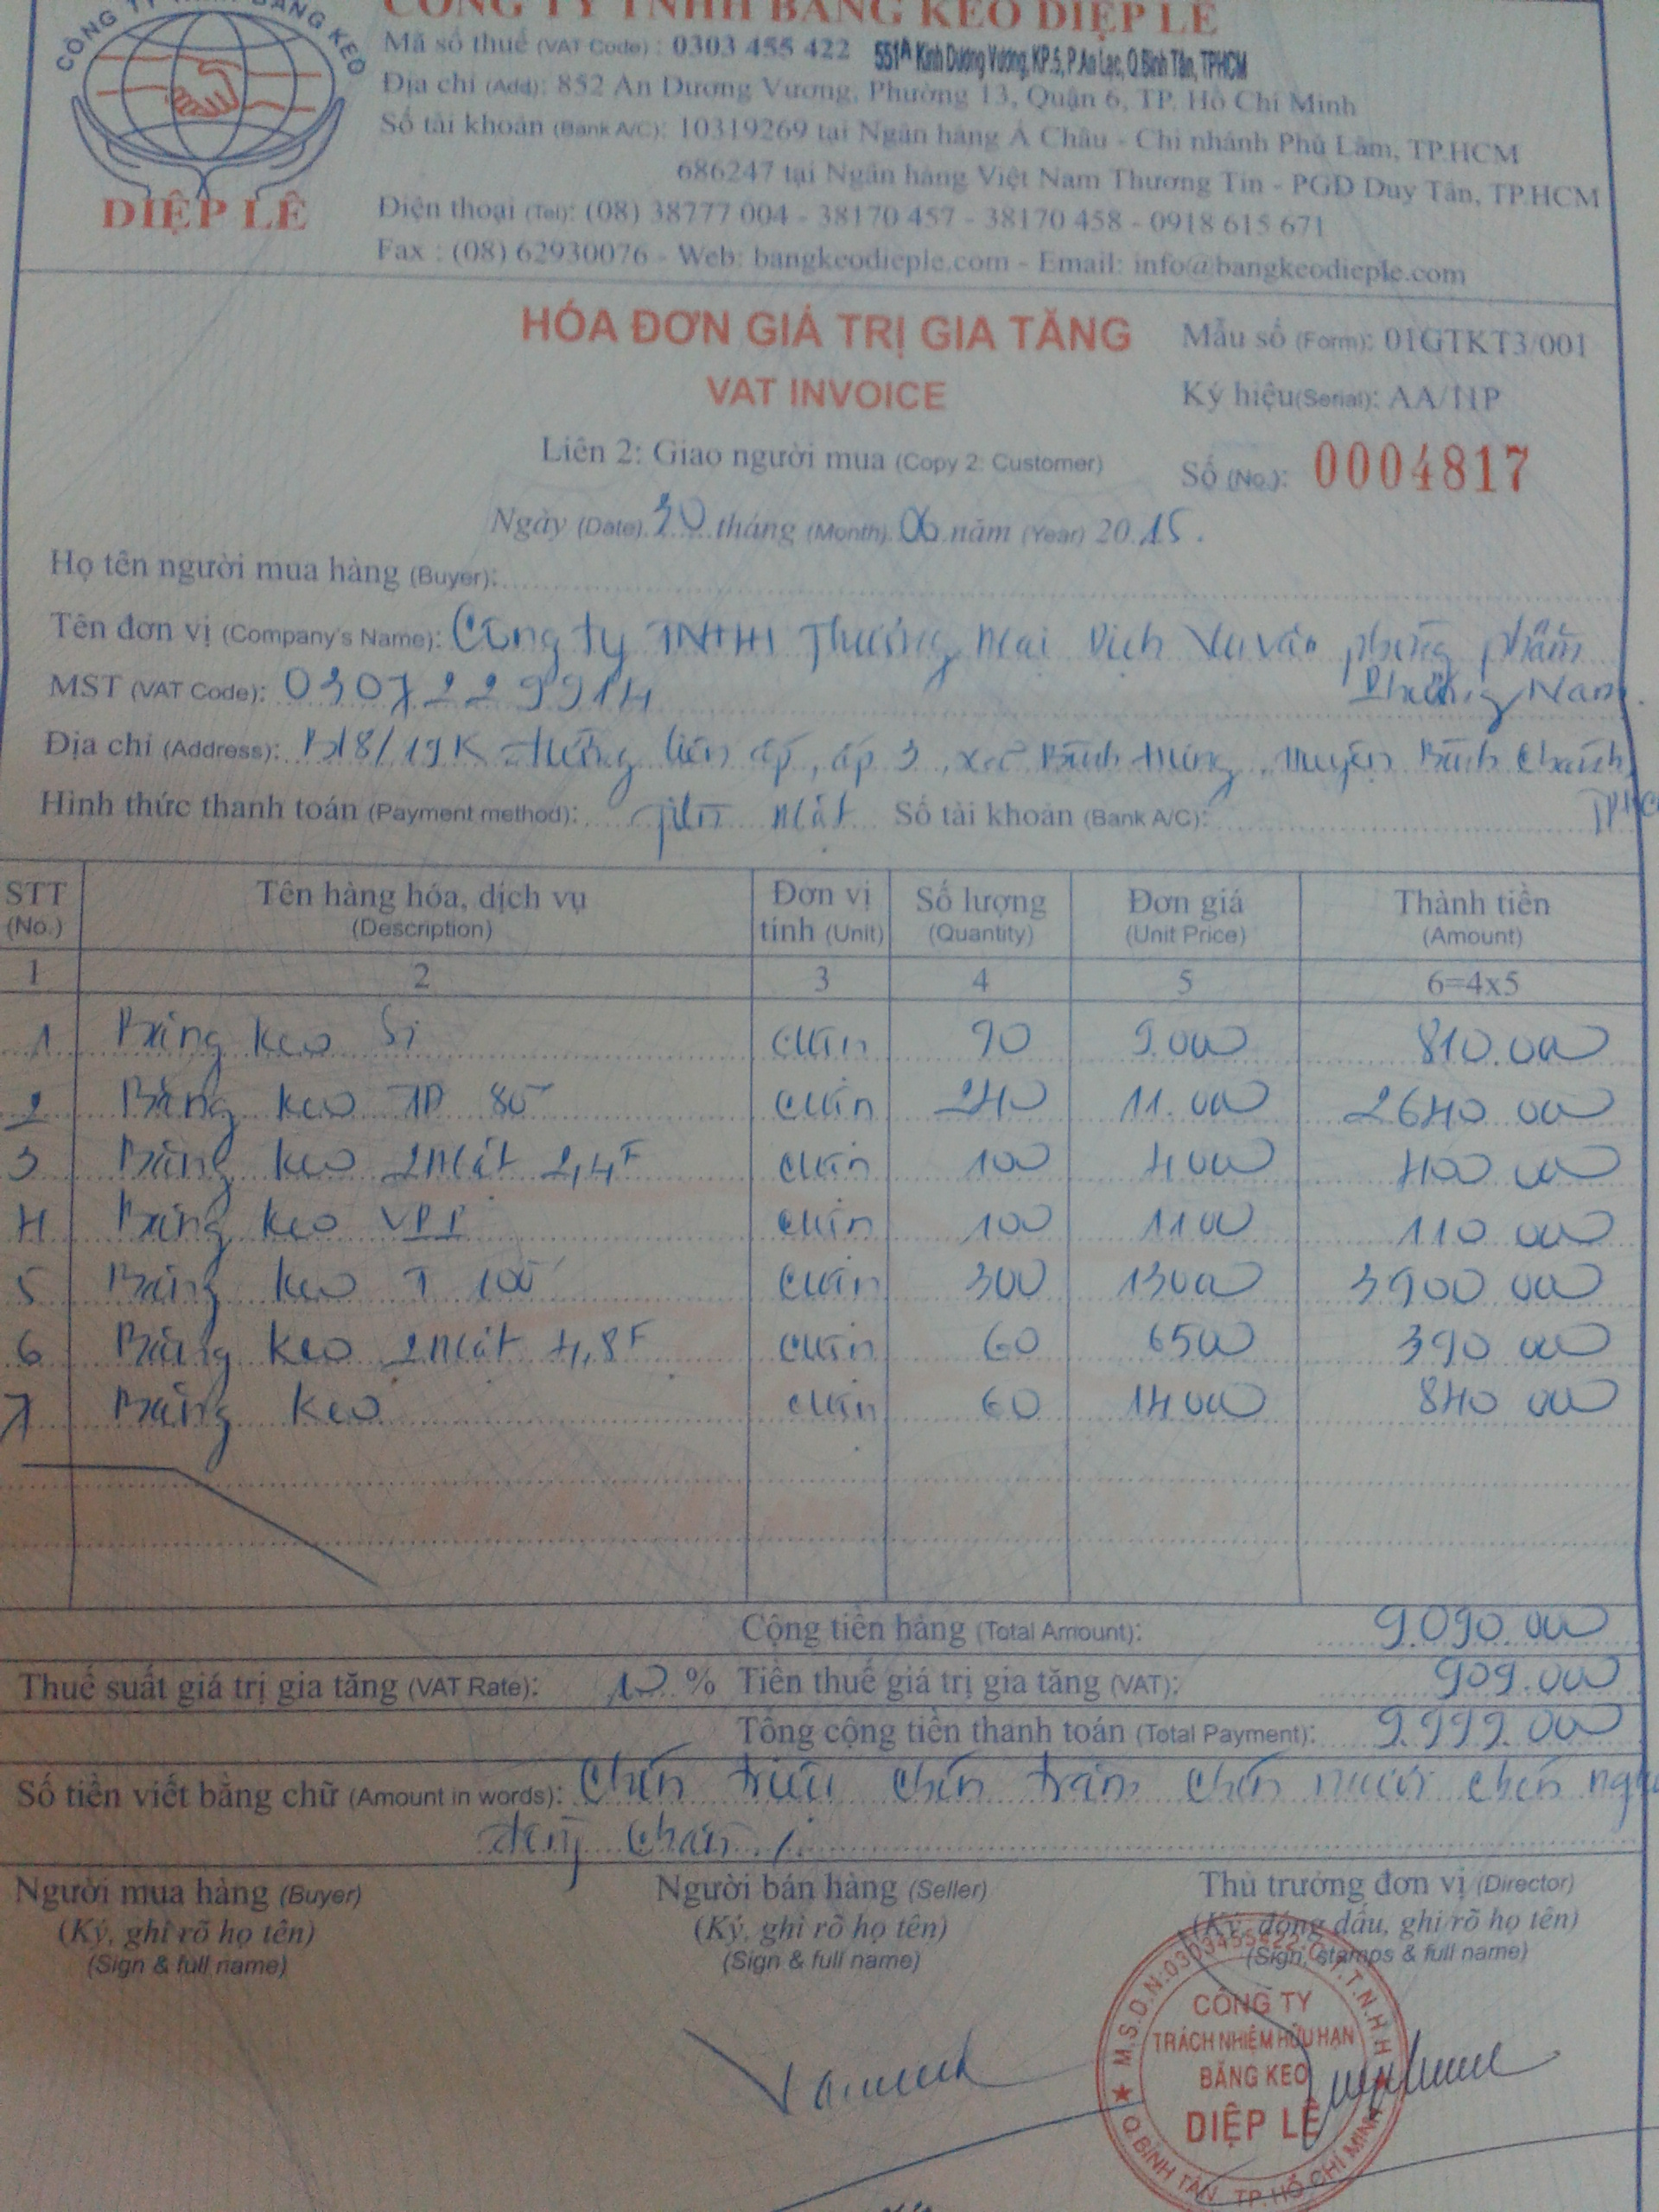 CÔNG TY TNHH BĂNG KEO DIỆP LÊ
CÔNG TY TNHH BĂNG KEO
DIỆP LÊ
Mã số thuế (VAT Code) : 0303 455 422 551A Kinh Dương Vương, KP.5, P.An Lạc, Q.Bình Tân, TPHCM
Địa chỉ (Add): 852 An Dương Vương, Phường 13, Quận 6, TP. Hồ Chí Minh
Số tài khoản (Bank A/C): 10319269 tại Ngân hàng Á Châu - Chi nhánh Phú Lâm, TP.HCM
686247 tại Ngân hàng Việt Nam Thương Tín - PGD Duy Tân, TP.HCM
Điện thoại (Tel): (08) 38777 004 - 38170 457 - 38170 458 - 0918 615 671
Fax : (08) 62930076 - Web: bangkeodieple.com - Email: info@bangkeodieple.com
HÓA ĐƠN GIÁ TRỊ GIA TĂNG Mẫu số (Form): 01GTKT3/001
VAT INVOICE Ký hiệu(Serial): AA/11P
Liên 2: Giao người mua (Copy 2: Customer) Số (No.): 0004817
Ngày (Date) 30 tháng (Month) 06 năm (Year) 2015.
Họ tên người mua hàng (Buyer):
Tên đơn vị (Company's Name): Công ty TNHH Thương Mại Dịch Vụ văn phòng phẩm
Phương Nam.
MST (VAT Code): 0307229914
Địa chỉ (Address): B18/19K đường liên ấp, ấp 3, xã Bình Hưng, Huyện Bình Chánh,
TPHC
Hình thức thanh toán (Payment method): Tiền mặt Số tài khoản (Bank A/C):
STT Tên hàng hóa, dịch vụ Đơn vị Số lượng Đơn giá Thành tiền
(No.) (Description) tính (Unit) (Quantity) (Unit Price) (Amount)
1 2 3 4 5 6=4x5
1 Băng keo Si cuộn 90 9.000 810.000
2 Băng keo TD 80 cuộn 240 11.000 2640.000
3 Băng keo 2 Mặt 2,4F cuộn 100 4000 400 000
4 Băng keo VPP cuộn 100 1100 110 000
5 Băng keo T 100 cuộn 300 13000 3900 000
6 Băng keo 2 Mặt 4,8F cuộn 60 6500 390 000
7 Băng keo cuộn 60 14000 840 000
Cộng tiền hàng (Total Amount): 9.090.000
Thuế suất giá trị gia tăng (VAT Rate): 10 % Tiền thuế giá trị gia tăng (VAT): 909.000
Tổng cộng tiền thanh toán (Total Payment): 9.999.000
Số tiền viết bằng chữ (Amount in words): Chín triệu chín trăm chín mươi chín
đồng chẵn
Người mua hàng (Buyer) Người bán hàng (Seller) Thủ trưởng đơn vị (Director)
(Ký, ghi rõ họ tên) (Ký, ghi rõ họ tên) (Ký, đóng dấu, ghi rõ họ tên)
(Sign & full name) (Sign & full name) (Sign, stamps & full name)
M.S.D.N:0303455422-C.T.T.N.H.H
CÔNG TY
TRÁCH NHIỆM HỮU HẠN
BĂNG KEO
DIỆP LÊ
Q.BÌNH TÂN TP.HỒ CHÍ MINH